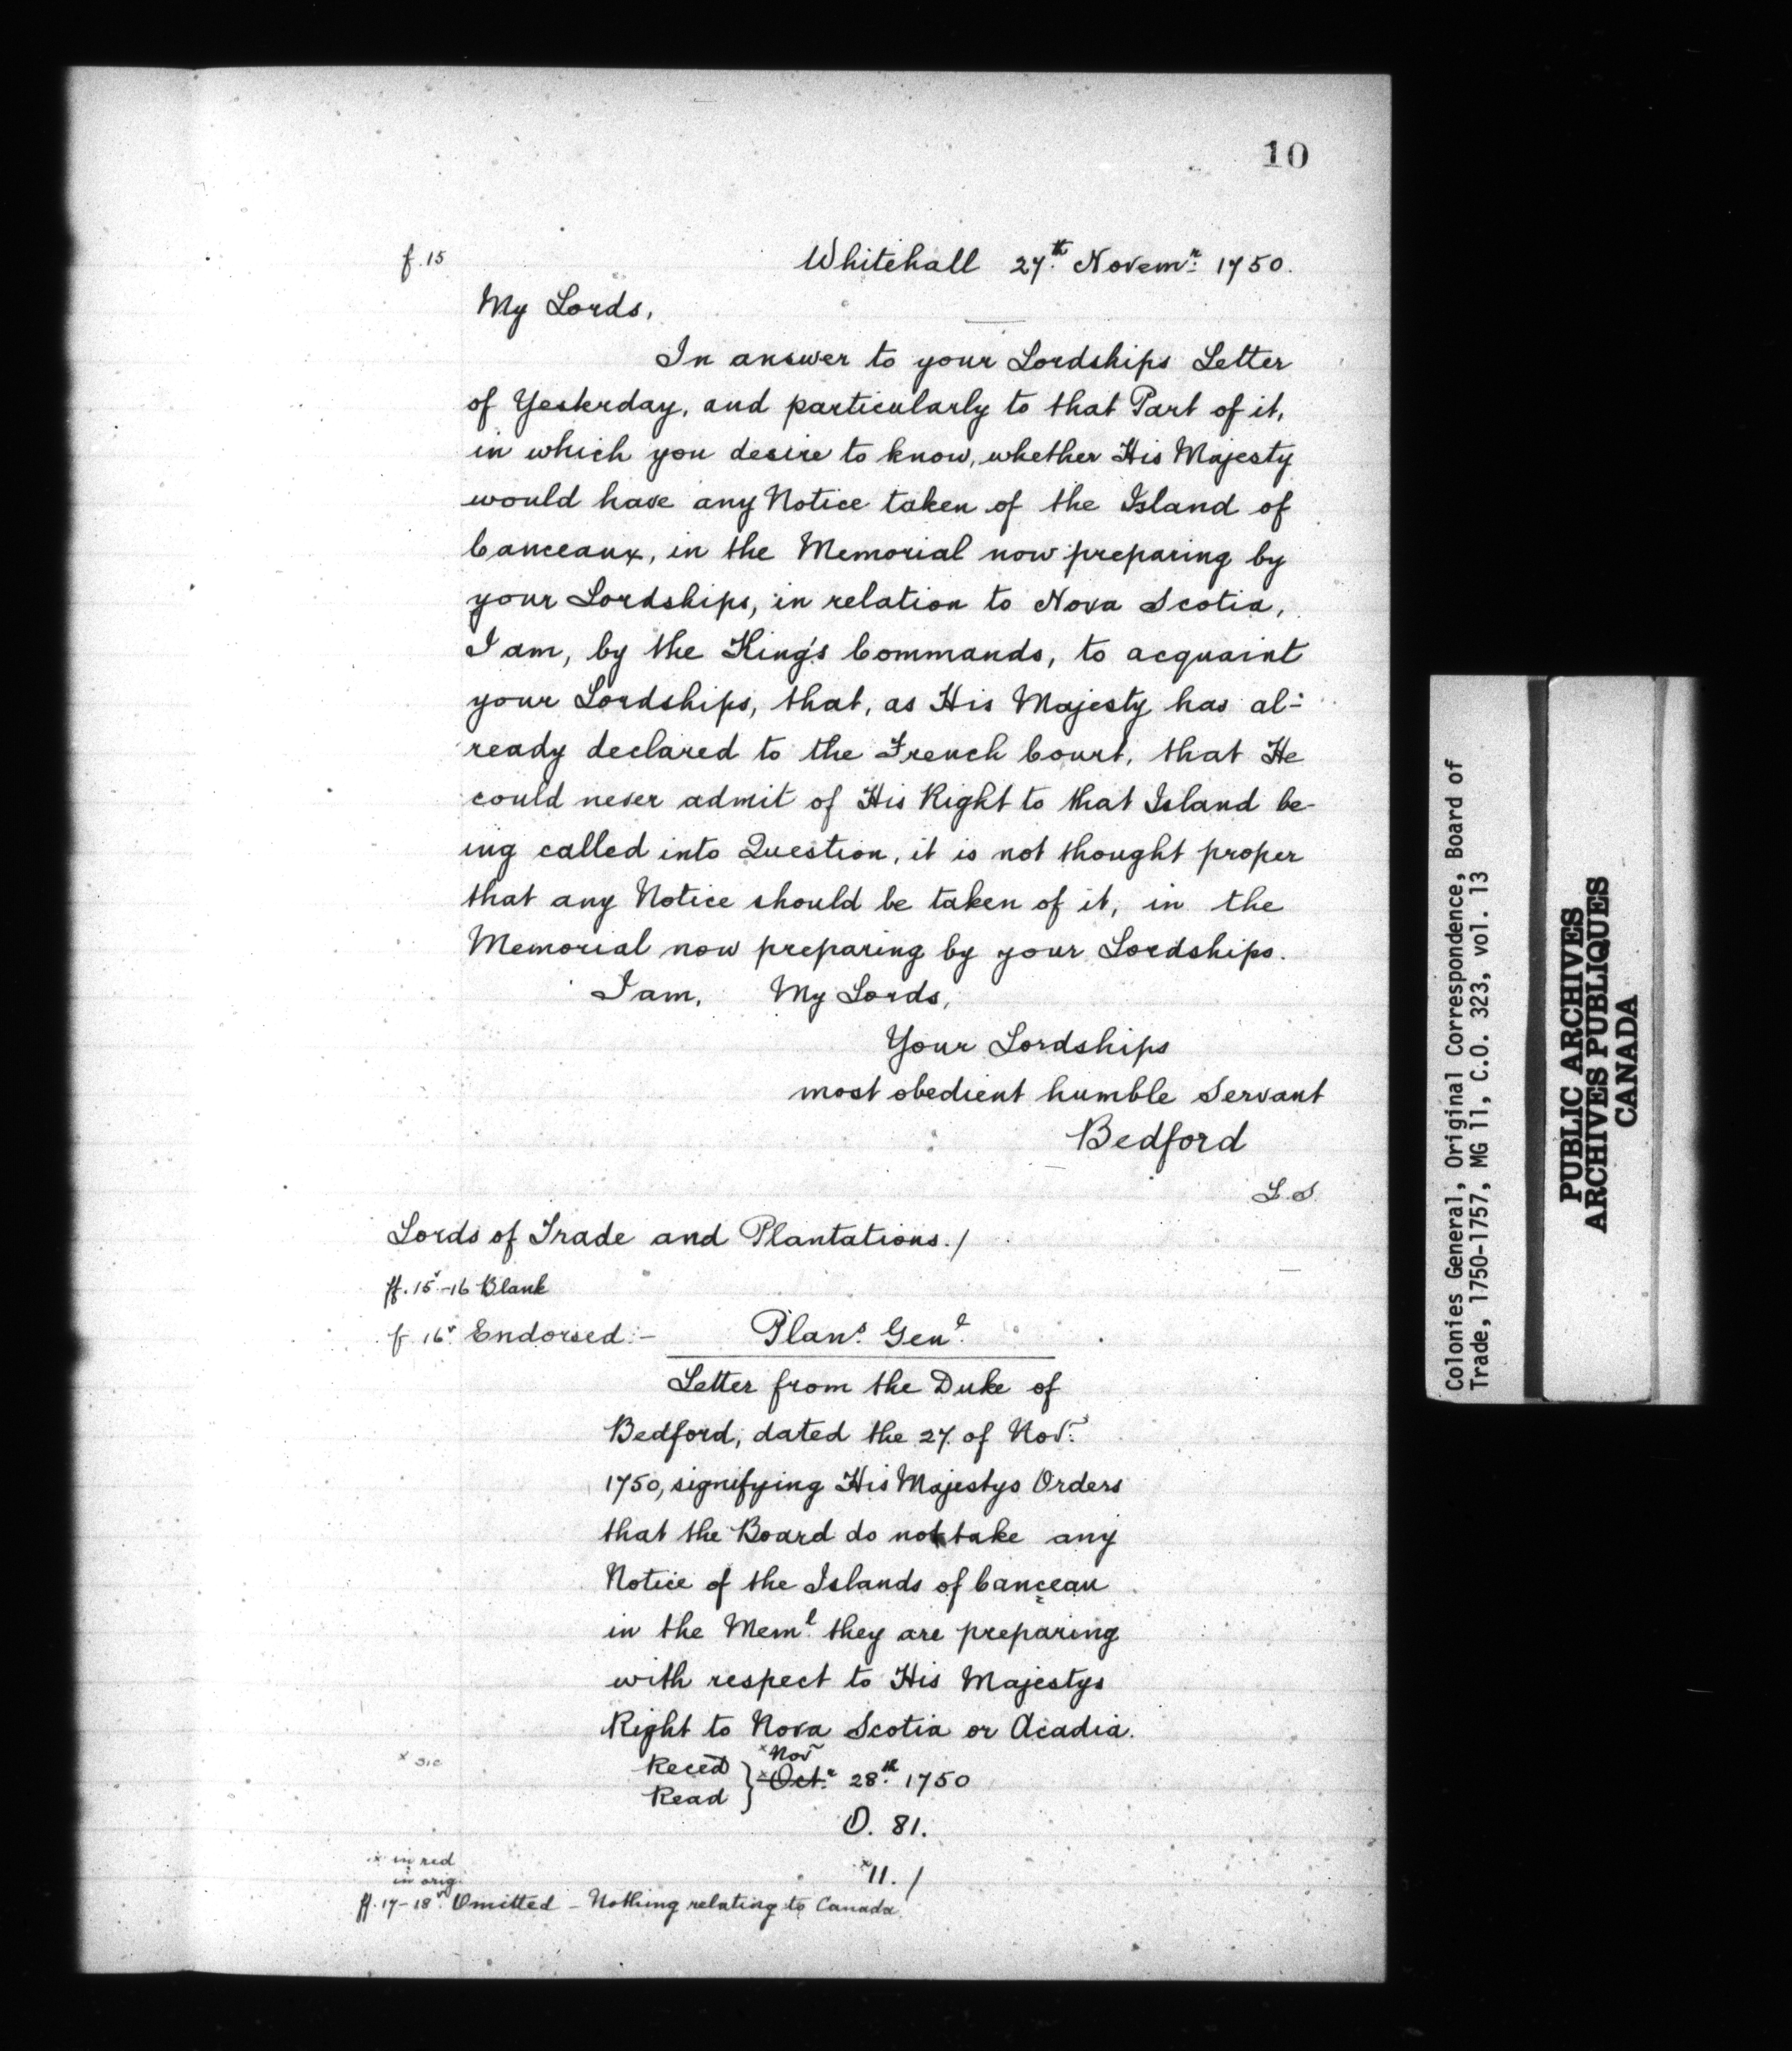 10
f. 15
Whitehall 27th. Novemr: 1750.
My Lords,
In answer to your Lordships Letter
of Yesterday, and particularly to that Part of it,
in which you desire to know, whether His Majesty
would have any Notice taken of the Island of
Canceaux, in the Memorial now preparing by
your Lordships, in relation to Nova Scotia,
I am, by the King's Commands, to acquaint
your Lordships, that, as His Majesty has al-
ready declared to the French Court, that He
could never admit of His Right to that Island be-
ing called into Question, it is not thought proper
that any Notice should be taken of it, in the
Memorial now preparing by your Lordships.
I am, My Lords,
Your Lordships
most obedient humble Servant
Bedford
L. S.
Lords of Trade and Plantations./
ff. 15v.-16 Blank
f. 16v. Endorsed:- Plans. Genl.
Letter from the Duke of
Bedford, dated the 27. of Novr.
1750, signifying His Majestys Orders
that the Board do not take any
Notice of the Islands of Canceau
in the Meml. they are preparing
with respect to His Majestys
Right to Nova Scotia or Acadia.
x sic
xNovr
Reced
Read } xOctr. 28th. 1750
O. 81.
x in red
in orig.
x11./
ff. 17-18v. Omitted - Nothing relating to Canada.
Colonies General, Original Correspondence, Board of
Trade, 1750-1757, MG 11, C.O. 323, vol. 13
PUBLIC ARCHIVES
ARCHIVES PUBLIQUES
CANADA